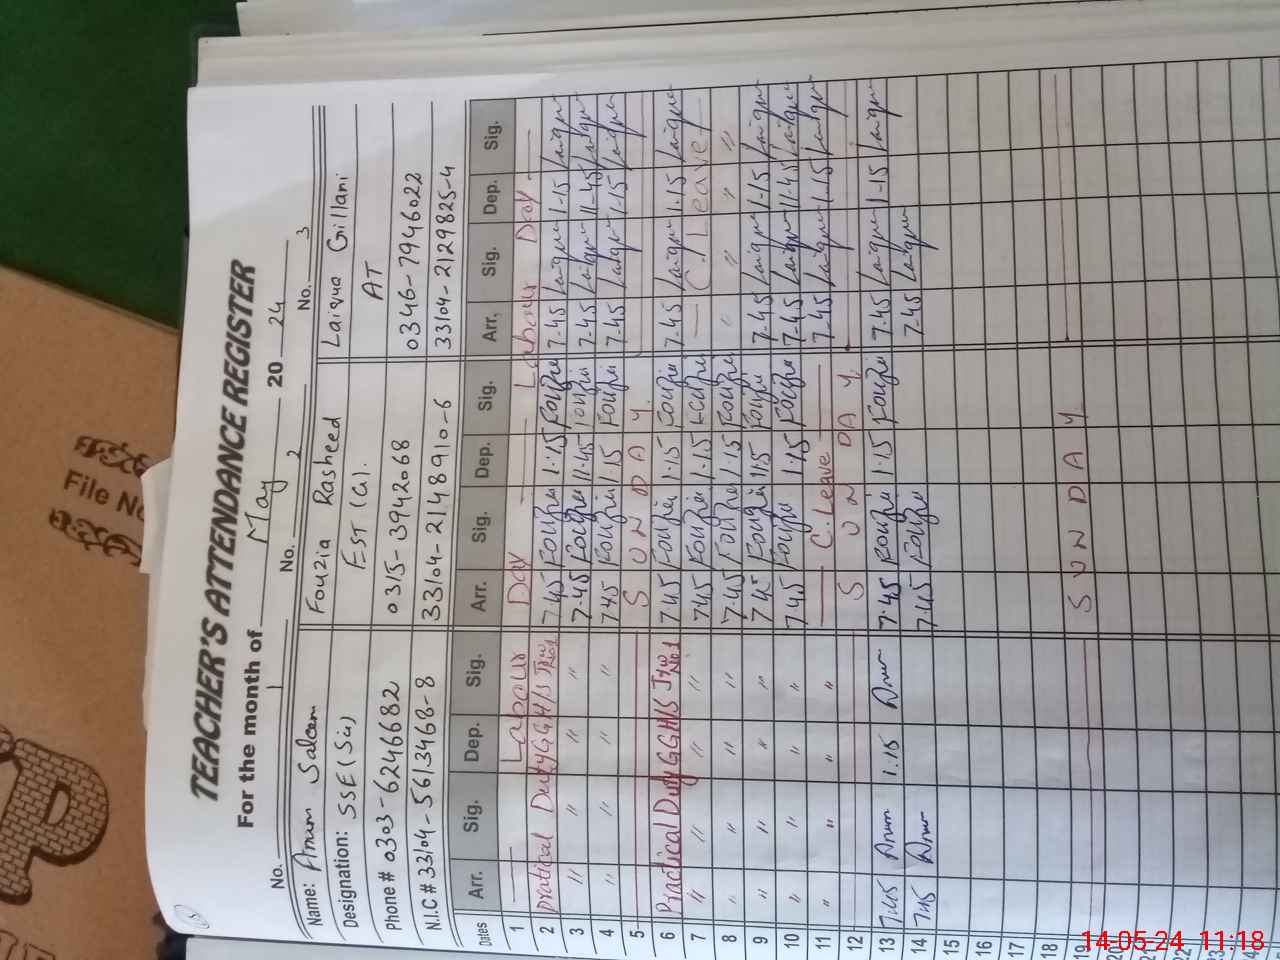 TEACHER'S ATTENDANCE REGISTER
For the month of May 2024
No. 1 No. 2 No. 3
Name: Anum Saleem Fouzia Rasheed Laiqua Gillani
Designation: SSE (Sci) EST (G). AT
Phone # 0303-6246682 0315-3942068 0346-7946022
N.I.C # 33104-5613468-8 33104-2148910-6 33104-2129825-4
Dates Arr. Sig. Dep. Sig. Arr. Sig. Dep. Sig. Arr. Sig. Dep. Sig.
1 Labour Day Labour Day
2 Pratical Duty GGH/S No1 7.45 Fouzia 1.15 Fouzia 7.45 Laiqua 1-15 Laiqua
3 " " " " 7.45 Fouzia 11.45 Fouzia 7-45 Laiqua 11-45 Laiqua
4 " " " " 7.45 Fouzia 1.15 Fouzia 7-45 Laiqua 1-15 Laiqua
5 S U N D A Y
6 Practical Duty GGH/S No1 7.45 Fouzia 1.15 Fouzia 7-45 Laiqua 1.15 Laiqua
7 " " " " 7.45 Fouzia 1.15 Fouzia C. Leave
8 " " " " 7.45 Fouzia 1.15 Fouzia " " " "
9 " " " " 7.45 Fouzia Fouzia 7-45 Laiqua 1-15 Laiqua
10 " " " " 7.45 Fouzia 1.15 Fouzia 7-45 Laiqua 11-45 Laiqua
11 " " " " C. Leave 7-45 Laiqua 1-15 Laiqua
12 S U N D A Y
13 7:45 Anum 1.15 Anum 7.45 Fouzia 1.15 Fouzia 7.45 Laiqua 1-15 Laiqua
14 7:45 Anum 7.45 Fouzia 7-45 Laiqua
15
16
17
18
19 S U N D A Y
20
21
22
23
24
File No
14-05-24 11:18